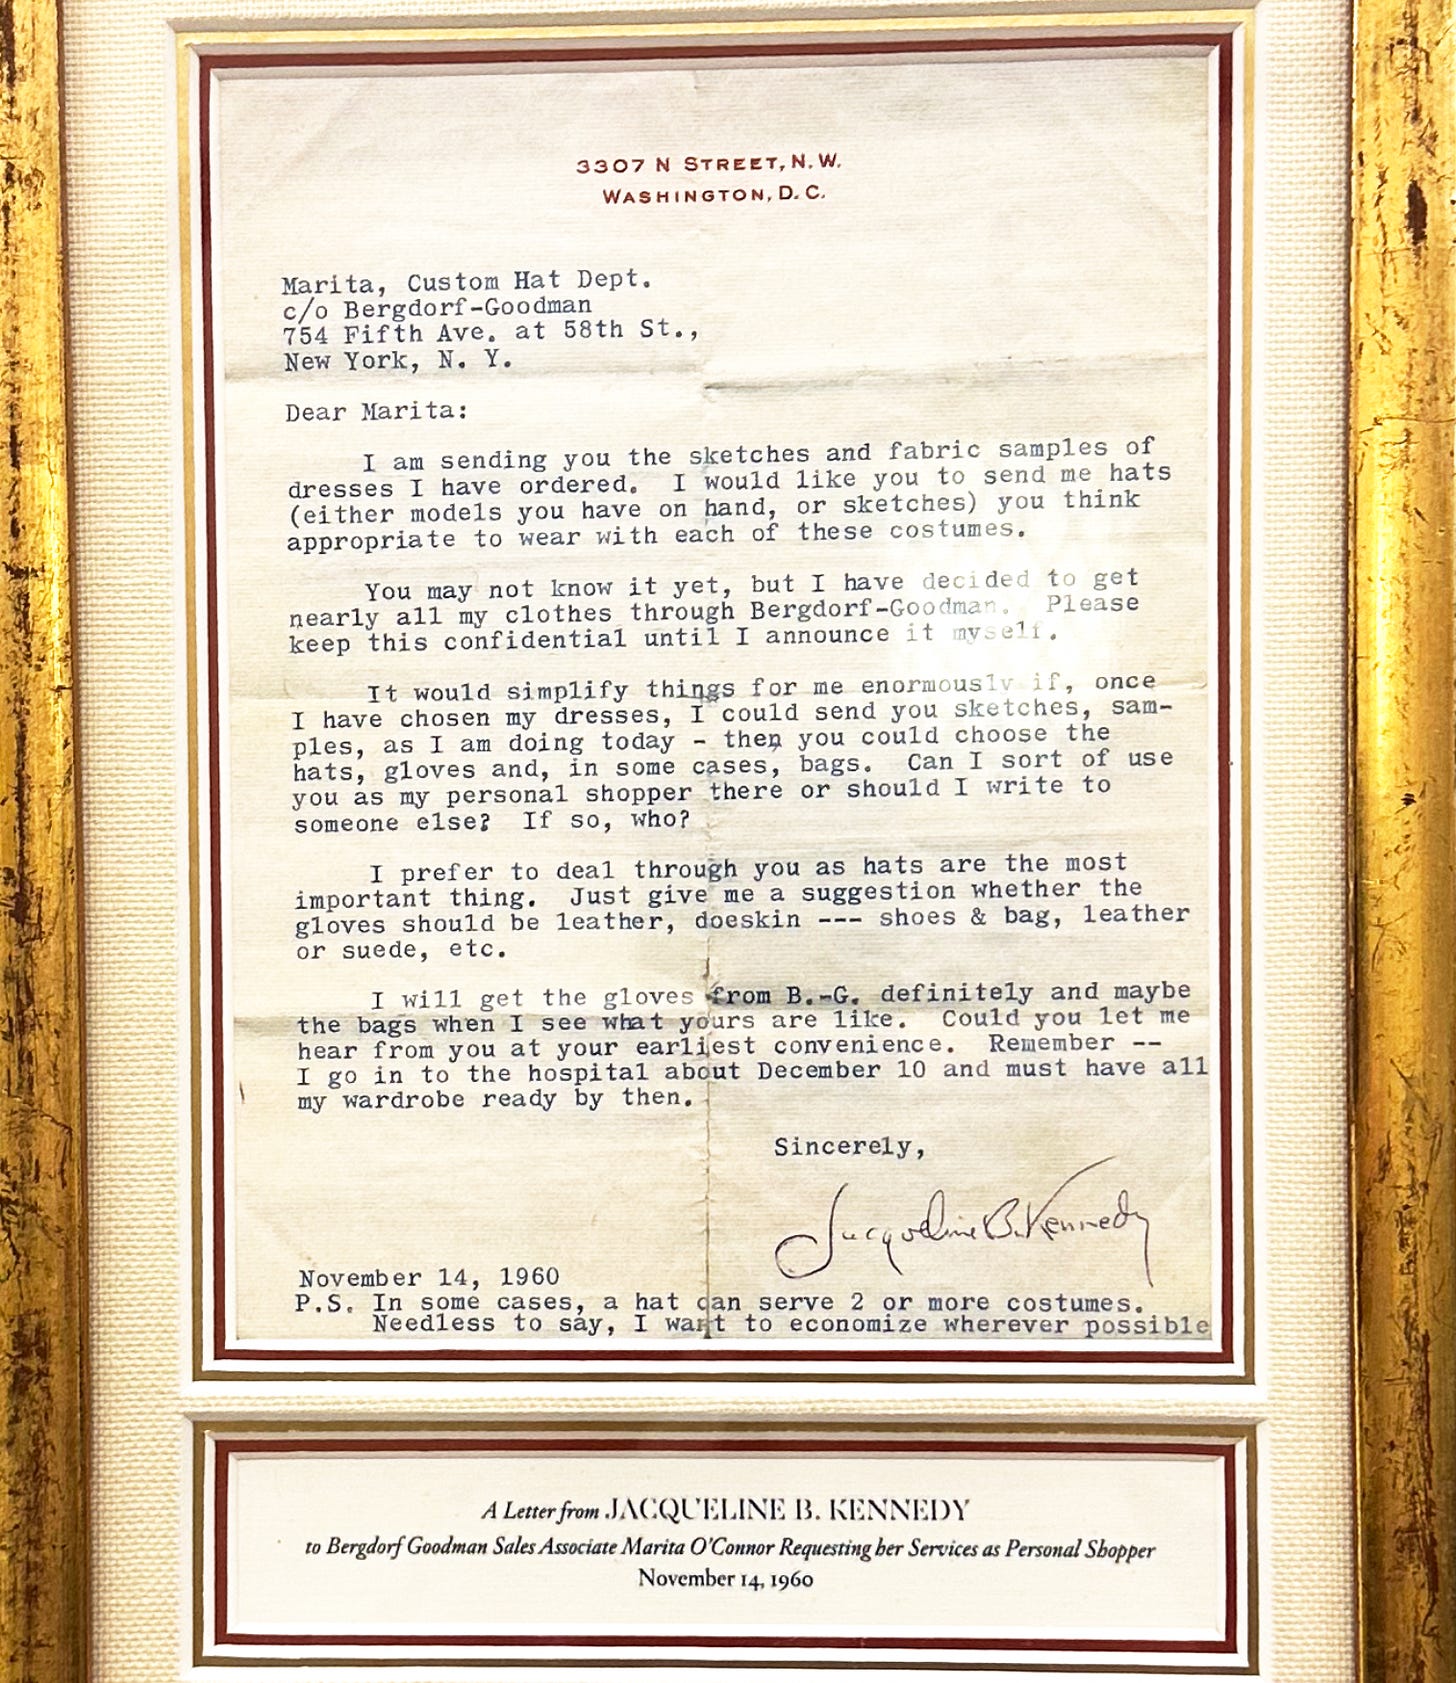 3307 N STREET, N.W.
WASHINGTON, D.C.
Marita, Custom Hat Dept.
c/o Bergdorf-Goodman
754 Fifth Ave. at 58th St.,
New York, N. Y.
Dear Marita:
I am sending you the sketches and fabric samples of
dresses I have ordered. I would like you to send me hats
(either models you have on hand, or sketches) you think
appropriate to wear with each of these costumes.
You may not know it yet, but I have decided to get
nearly all my clothes through Bergdorf-Goodman. Please
keep this confidential until I announce it myself.
It would simplify things for me enormously if, once
I have chosen my dresses, I could send you sketches, sam-
ples, as I am doing today - then you could choose the
hats, gloves and, in some cases, bags. Can I sort of use
you as my personal shopper there or should I write to
someone else? If so, who?
I prefer to deal through you as hats are the most
important thing. Just give me a suggestion whether the
gloves should be leather, doeskin --- shoes & bag, leather
or suede, etc.
I will get the gloves from B.-G. definitely and maybe
the bags when I see what yours are like. Could you let me
hear from you at your earliest convenience. Remember --
I go in to the hospital about December 10 and must have all
my wardrobe ready by then.
Sincerely,
Jacqueline B. Kennedy
November 14, 1960
P.S. In some cases, a hat can serve 2 or more costumes.
Needless to say, I want to economize wherever possible
A Letter from JACQUELINE B. KENNEDY
to Bergdorf Goodman Sales Associate Marita O'Connor Requesting her Services as Personal Shopper
November 14, 1960